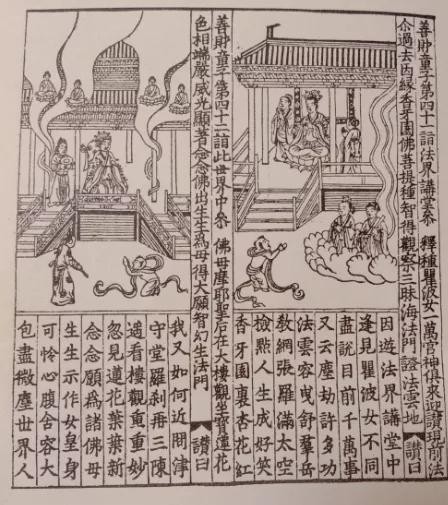 善財童子第四十一詣法界講堂參 釋種瞿波女一萬宮神俱來迎讚現前法
示過去因緣香牙園佛菩提種智得觀察三昧海法門證法雲地 讚曰
因遊法界講堂中
逢見瞿波女不同
盡說目前千萬事
又云塵劫許多功
法雲容曳舒羣岳
教網張羅滿太空
撿點人生成好笑
香牙園裏杏花紅
善財童子第四十二詣此世界中參 佛母摩耶聖后在大樓觀坐寶蓮花
色相端嚴威光顯著念念佛出生生為母得大願智幻生法門 讚曰
我又如何近問津
守堂羅剎再三陳
遍看樓觀重重妙
忽見蓮花葉葉新
念念願為諸佛母
生生示作女皇身
可怜心腹含容大
包盡微塵世界人